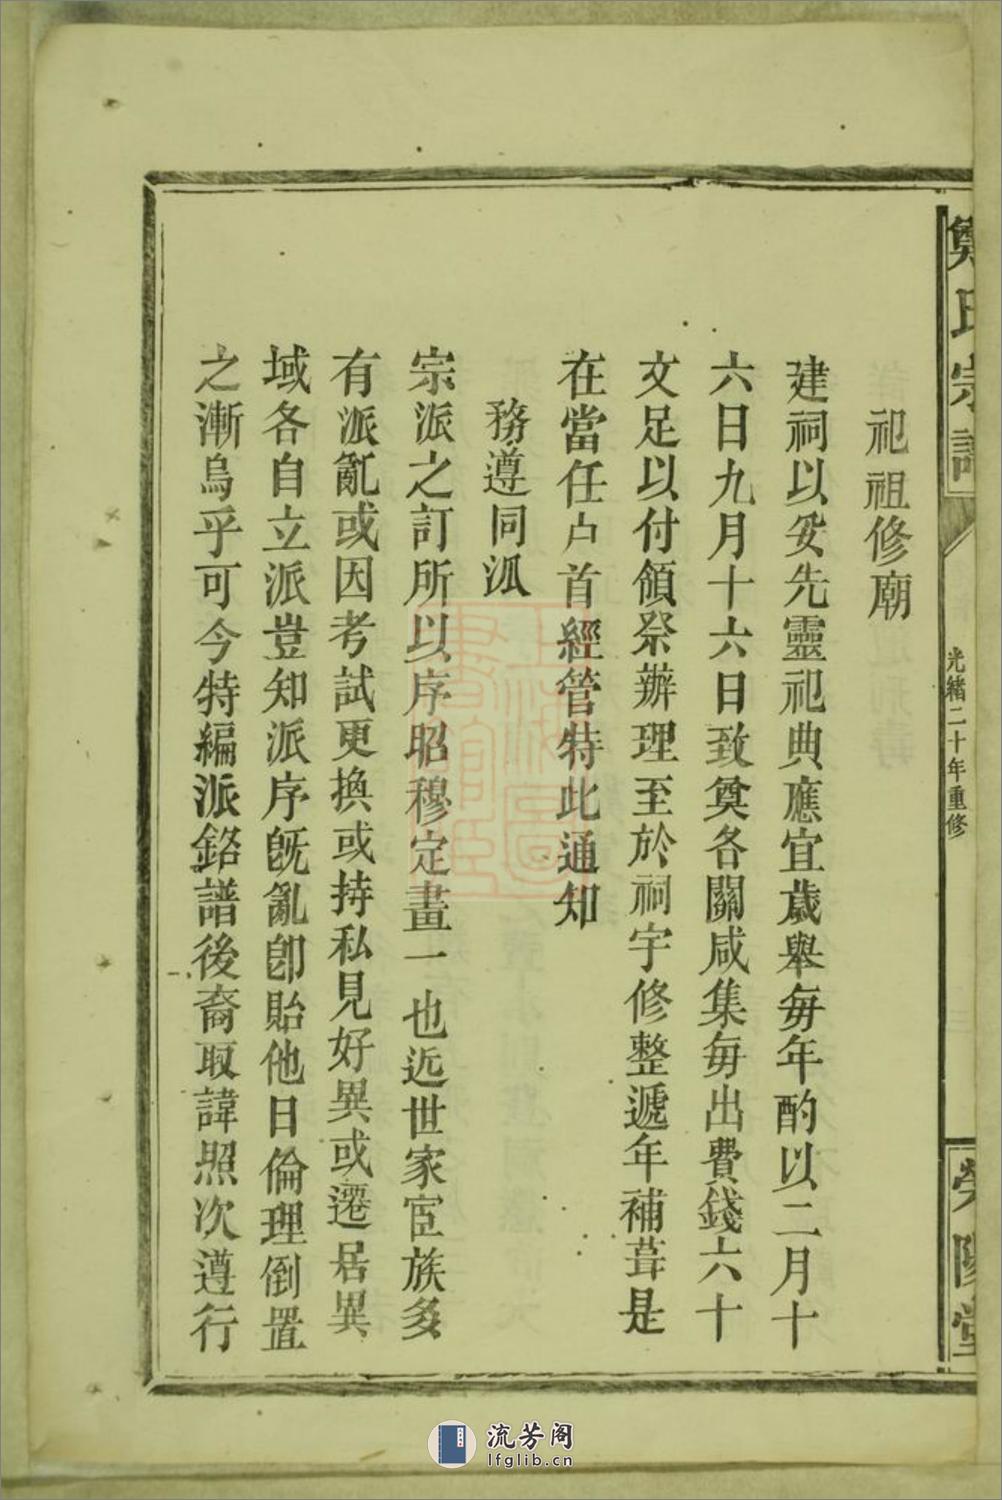 鄭氏宗譜
光緒二十年重修
滎陽堂
祀祖修廟
建祠以妥先靈祀典應宜歲舉每年酌以二月十
六日九月十六日致奠各關咸集每出費錢六十
文足以付領祭辦理至於祠宇修整遞年補葺是
在當任户首經管特此通知
務遵同派
宗派之訂所以序昭穆定畫一也近世家宦族多
有派亂或因考試更換或持私見好異或遷居異
域各自立派豈知派序旣亂卽貽他日倫理倒置
之漸烏乎可今特編派銘譜後裔取諱照次遵行
上海圖書館藏
流芳阁
lfglib.cn